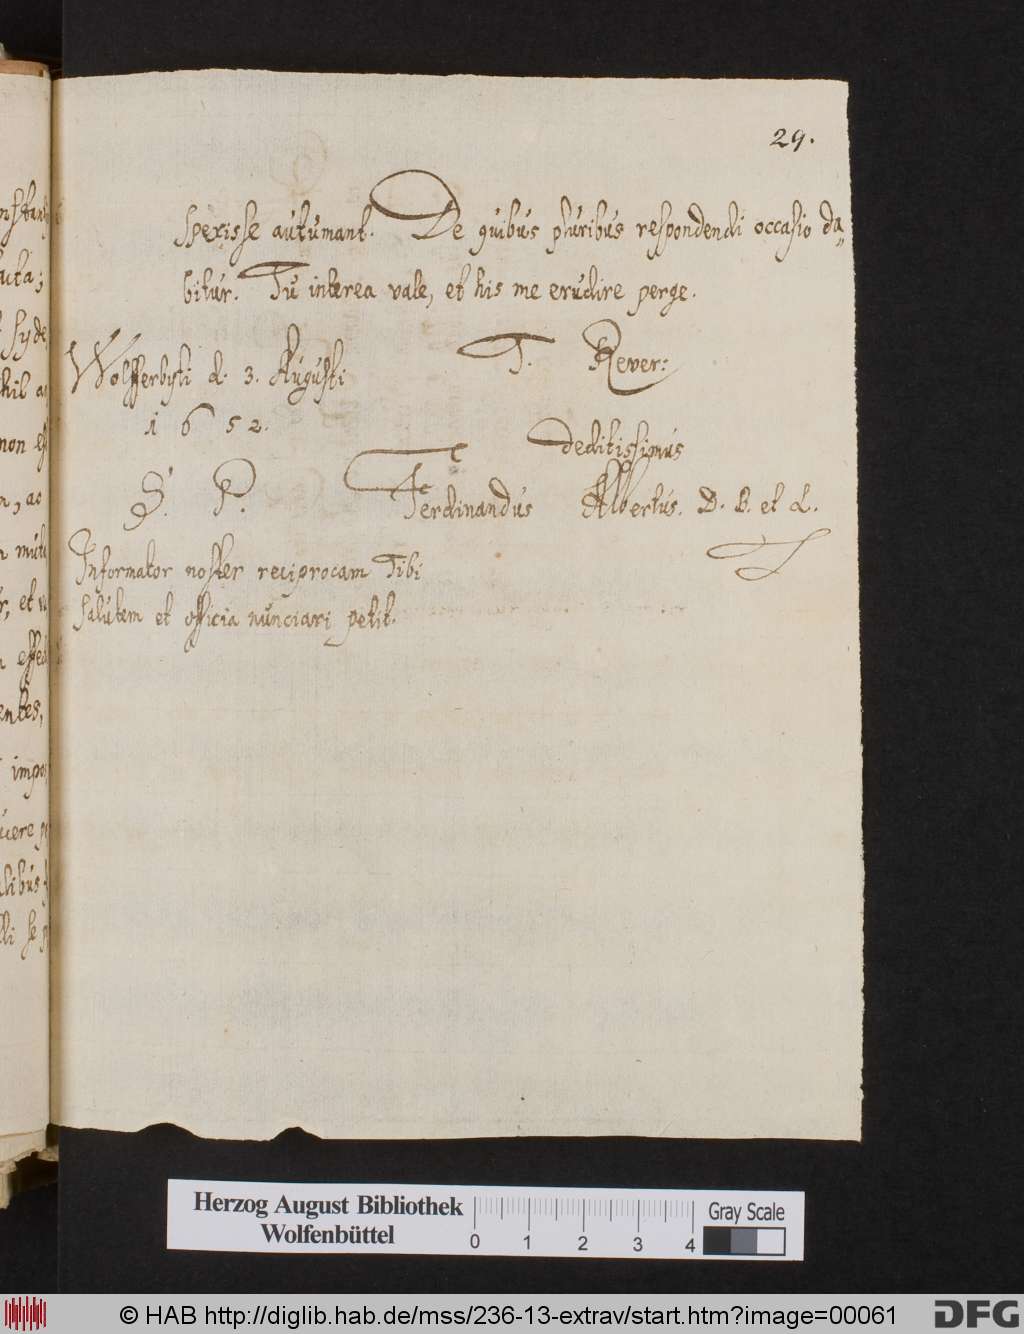 29.
spexisse autumant. De quibus pluribus respondendi occasio da„
bitur. Tu interea vale, et his me erudire perge.
Wolfferbyti d. 3. Augusti
1652.
T. Rever:
deditissimus
Ferdinandus Albertus. D. B. et L.
S. P.
Informator noster reciprocam Tibi
salutem et officia nunciari petit.
uta;
syde
hil a
non es
, ac
mutu
r, et
effec
entes,
impo
uere
libus
li se
Herzog August Bibliothek
Wolfenbüttel
0 1 2 3 4
Gray Scale
© HAB http://diglib.hab.de/mss/236-13-extrav/start.htm?image=00061
DFG